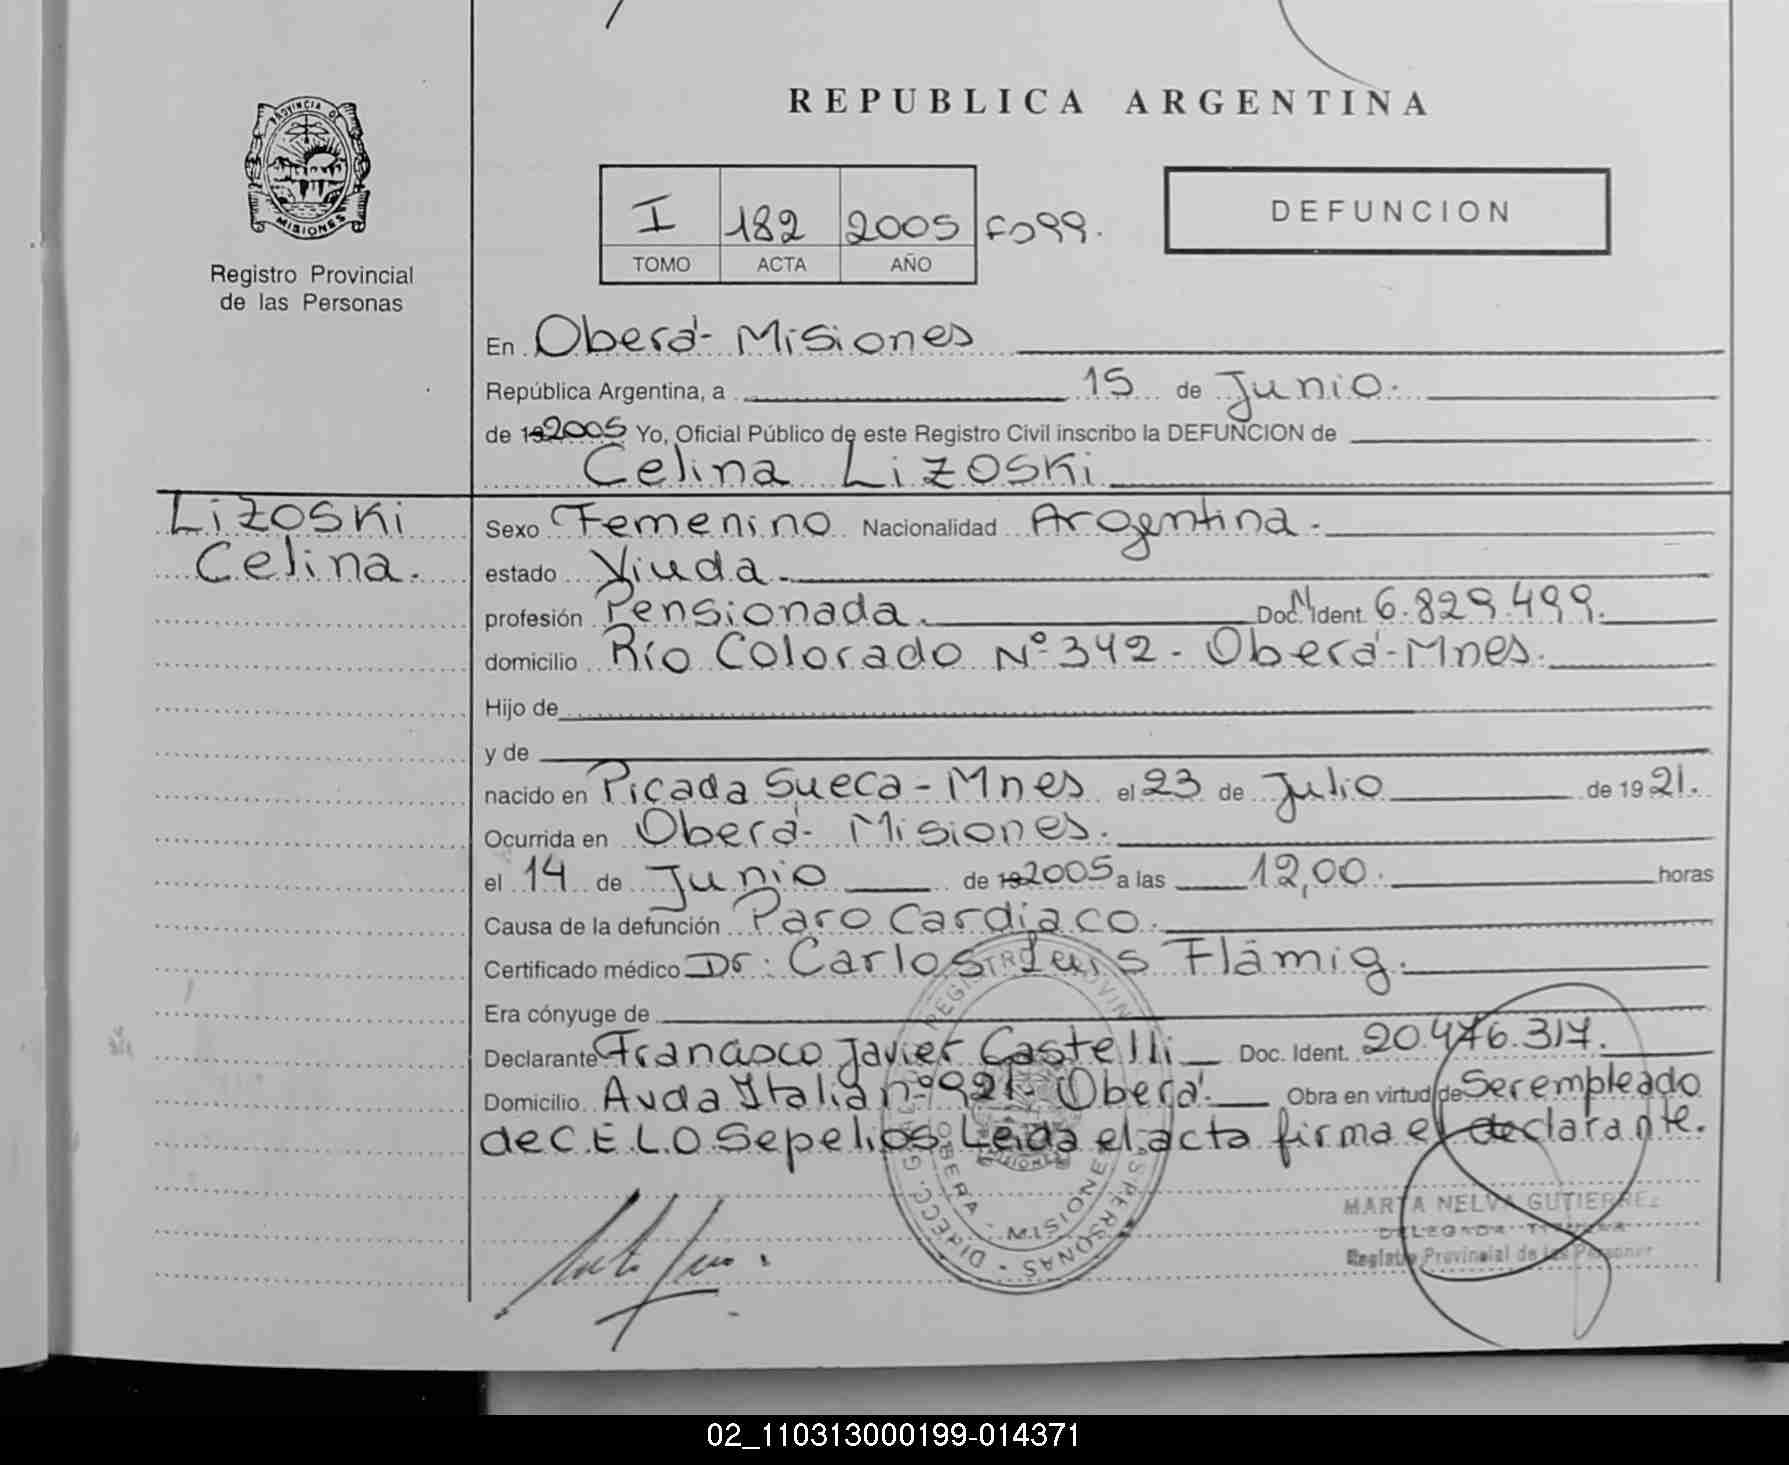 PROVINCIA DE
MISIONES
Registro Provincial
de las Personas
REPUBLICA ARGENTINA
I 182 2005 Fo99.
TOMO ACTA AÑO
DEFUNCION
En Oberá- Misiones
República Argentina, a 15 de Junio.
de 192005 Yo, Oficial Público de este Registro Civil inscribo la DEFUNCION de
Celina Lizoski
Lizoski
Celina.
Sexo Femenino Nacionalidad Argentina.
estado Viuda.
profesión Pensionada. Doc.N Ident. 6.829.499.
domicilio Río Colorado Nº 342 - Oberá-Mnes.
Hijo de
y de
nacido en Picada Sueca - Mnes el 23 de Julio de 1921.
Ocurrida en Oberá- Misiones.
el 14 de Junio de 192005 a las 12,00. horas
Causa de la defunción Paro Cardiaco.
Certificado médico Dr. Carlos Luis Flämig.
Era cónyuge de
Declarante Francisco Javier Castelli Doc. Ident. 20.476.317.
Domicilio Avda Italia nº 921- Oberá. Obra en virtud de Ser empleado
de C.E.L.O Sepelios. Leida el acta firma el declarante.
DIRECC. GRAL. REGISTRO PROVIN. PERSONAS
OBERA - MISIONES
MARTA NELVA GUTIERREZ
DELEGADA TITULAR
Registro Provincial de las Personas
02_110313000199-014371